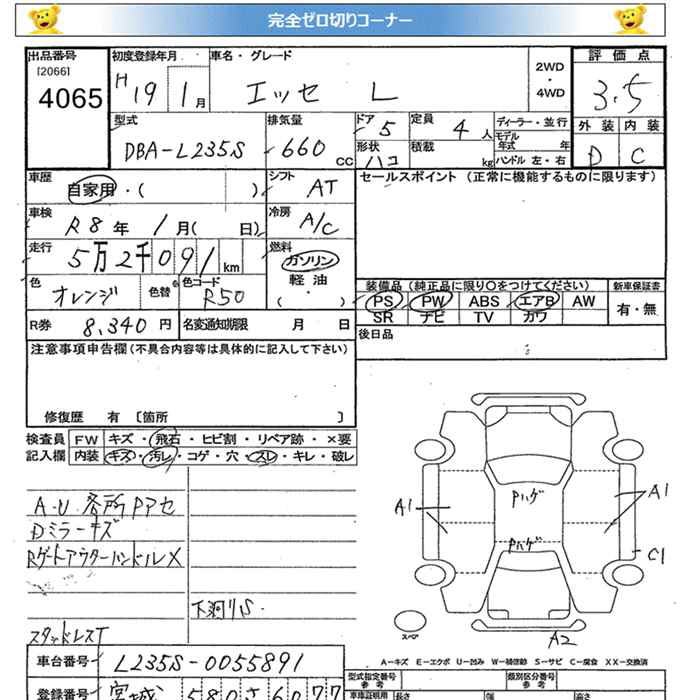 完全ゼロ切りコーナー
出品番号 初度登録年月 車名・グレード 2WD ・ 4WD 評価点
[2066]
4065 H19 1月 エッセ L 3.5
型式 排気量 ドア 5 定員 4人 ディーラー・並行 外装 内装
DBA-L235S 660cc 形状 ハコ 積載 kg モデル年式 年 ハンドル 左・右 D C
車歴 自家用・( ) シフト AT セールスポイント (正常に機能するものに限ります)
車検 R8年 1月( 日) 冷房 A/C
走行 5万2千091km 燃料 ガソリン 軽油 ( )
色 オレンジ 色替 色コード R50
装備品(純正品に限り〇をつけてください) 新車保証書
PS PW ABS エアB AW 有・無
SR ナビ TV カワ
R券 8,340円 名変通知期限 月 日 後日品
注意事項申告欄(不具合内容等は具体的に記入して下さい)
修復歴 有 [箇所 ]
検査員 FW キズ・飛石・ヒビ割・リペア跡・×要
記入欄 内装 キズ・汚レ・コゲ・穴・スレ・キレ・破レ
A.U 各所Pアセ
Dミラーキズ
Rゲートアウターハンドル×
下廻りS
スタッドレスT
Pハゲ
A1 A1
Pハゲ
C1
スペア
A2
A-キズ E-エクボ U-凹み W-補修跡 S-サビ C-腐食 XX-交換済
車台番号 L235S-0055891 型式指定番号 参考 類別区分番号 参考
登録番号 宮城 580 さ 6077 車庫証明用 長さ 幅 高さ